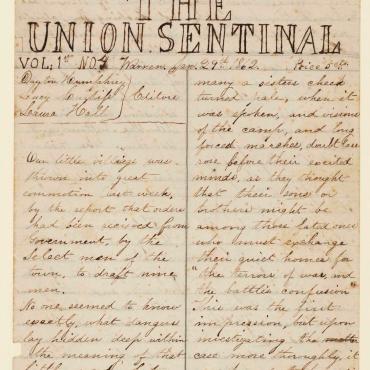 THE
UNION SENTINAL
VOL, 1st NO, 4 Warren, Jan. 29th 1862. Price 5 cts
Dayton Humphrey
Lucy
Laura Hall
Editors
Our little village was
thrown into great
commotion last week,
by the report that orders
had been received from
Government, by the
Select men of the
town, to draft nine
men.
No one seemed to know
exactly, what dangers
lay hidden deep within
the meaning of that
many a sisters cheek
turned pale, when it
was spoken, and visions
of the camp, and long
forced marches, doubtless
rose before their excited
minds, as they thought
that their sons or
brothers might be
among those fated ones
who must exchange
their quiet homes for
"the terrors of war, and
the battles confusion"
This was the first
impression, but upon
investigating the matter
case more thoroughly, it